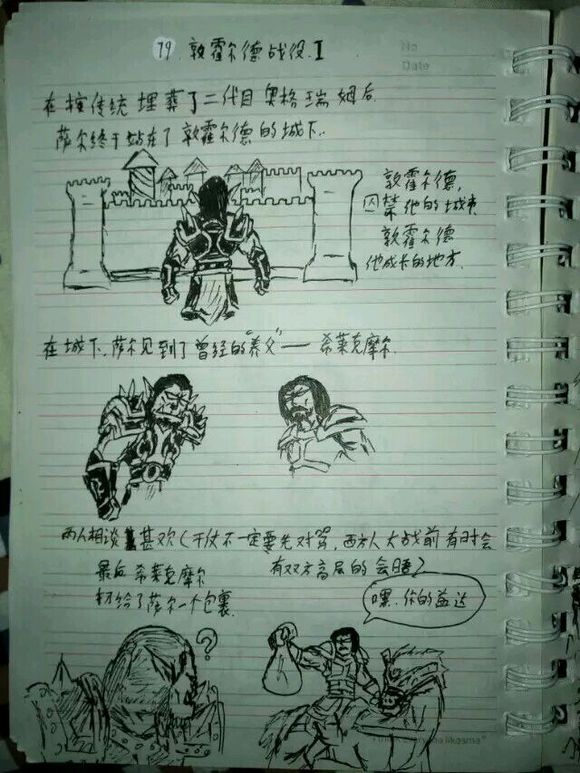 79. 敦霍尔德战役.I
No
Date
在按传统埋葬了二代目奥格瑞姆后.
萨尔终于站在了敦霍尔德的城下.
敦霍尔德,
囚禁他的城市
敦霍尔德
他成长的地方.
在城下,萨尔见到了曾经的“养父”——希莱克摩尔.
两人相谈甚欢(干仗不一定要先对骂,西方人大战前有时会
有双方高层的会晤)
最后希莱克摩尔
扔给了萨尔一个包裹.
嘿,你的益达
?